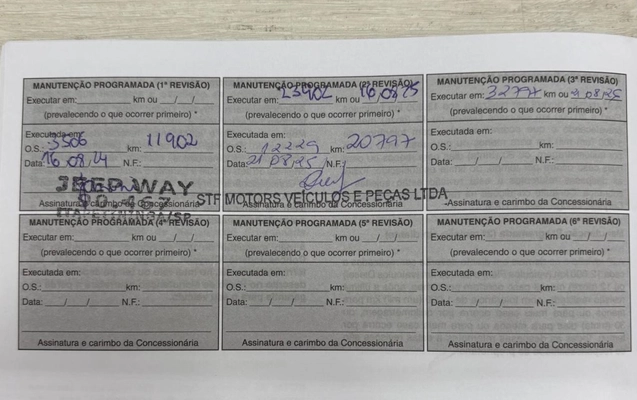 MANUTENÇÃO PROGRAMADA (1ª REVISÃO)
Executar em: km ou / /
(prevalecendo o que ocorrer primeiro) *
Executada em:
O.S.: 3506 km: 11902
Data: 16/08/24 N.F.:
JEEP WAY
Assinatura e carimbo da Concessionária
ITAPETININGA/SP
MANUTENÇÃO PROGRAMADA (2ª REVISÃO)
Executar em: 23902 km ou 16/08/25
(prevalecendo o que ocorrer primeiro) *
Executada em:
O.S.: 12229 km: 20797
Data: 21/08/25 N.F.:
STF MOTORS VEÍCULOS E PEÇAS LTDA
Assinatura e carimbo da Concessionária
MANUTENÇÃO PROGRAMADA (3ª REVISÃO)
Executar em: 32797 km ou
(prevalecendo o que ocorrer primeiro) *
Executada em:
O.S.: km:
Data: / / N.F.:
Assinatura e carimbo da Concessionária
MANUTENÇÃO PROGRAMADA (4ª REVISÃO)
Executar em: km ou / /
(prevalecendo o que ocorrer primeiro) *
Executada em:
O.S.: km:
Data: / / N.F.:
Assinatura e carimbo da Concessionária
MANUTENÇÃO PROGRAMADA (5ª REVISÃO)
Executar em: km ou / /
(prevalecendo o que ocorrer primeiro) *
Executada em:
O.S.: km:
Data: / / N.F.:
Assinatura e carimbo da Concessionária
MANUTENÇÃO PROGRAMADA (6ª REVISÃO)
Executar em: km ou / /
(prevalecendo o que ocorrer primeiro) *
Executada em:
O.S.: km:
Data: / / N.F.:
Assinatura e carimbo da Concessionária